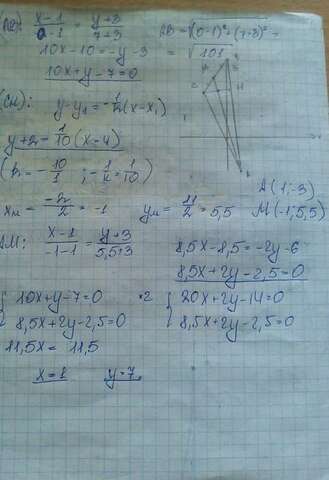 (AB): (x-1)/(0-1) = (y+3)/(7+3) AB = √(0-1)²+(7+3)² =
10x-10=-y-3 = √101
10x+y-7=0
(CH): y-y₁=-1/k(x-x₁)
y+2=1/10(x-4)
(k=-10/1; -1/k=1/10)
A(1;-3)
xм=-2/2=-1 yм=11/2=5,5 M(-1;5,5)
AM: (x-1)/(-1-1)=(y+3)/(5,5+3) 8,5x-8,5=-2y-6
8,5x+2y-2,5=0
{10x+y-7=0 ·2 {20x+2y-14=0
8,5x+2y-2,5=0 8,5x+2y-2,5=0
11,5x=11,5
x=1 y=7